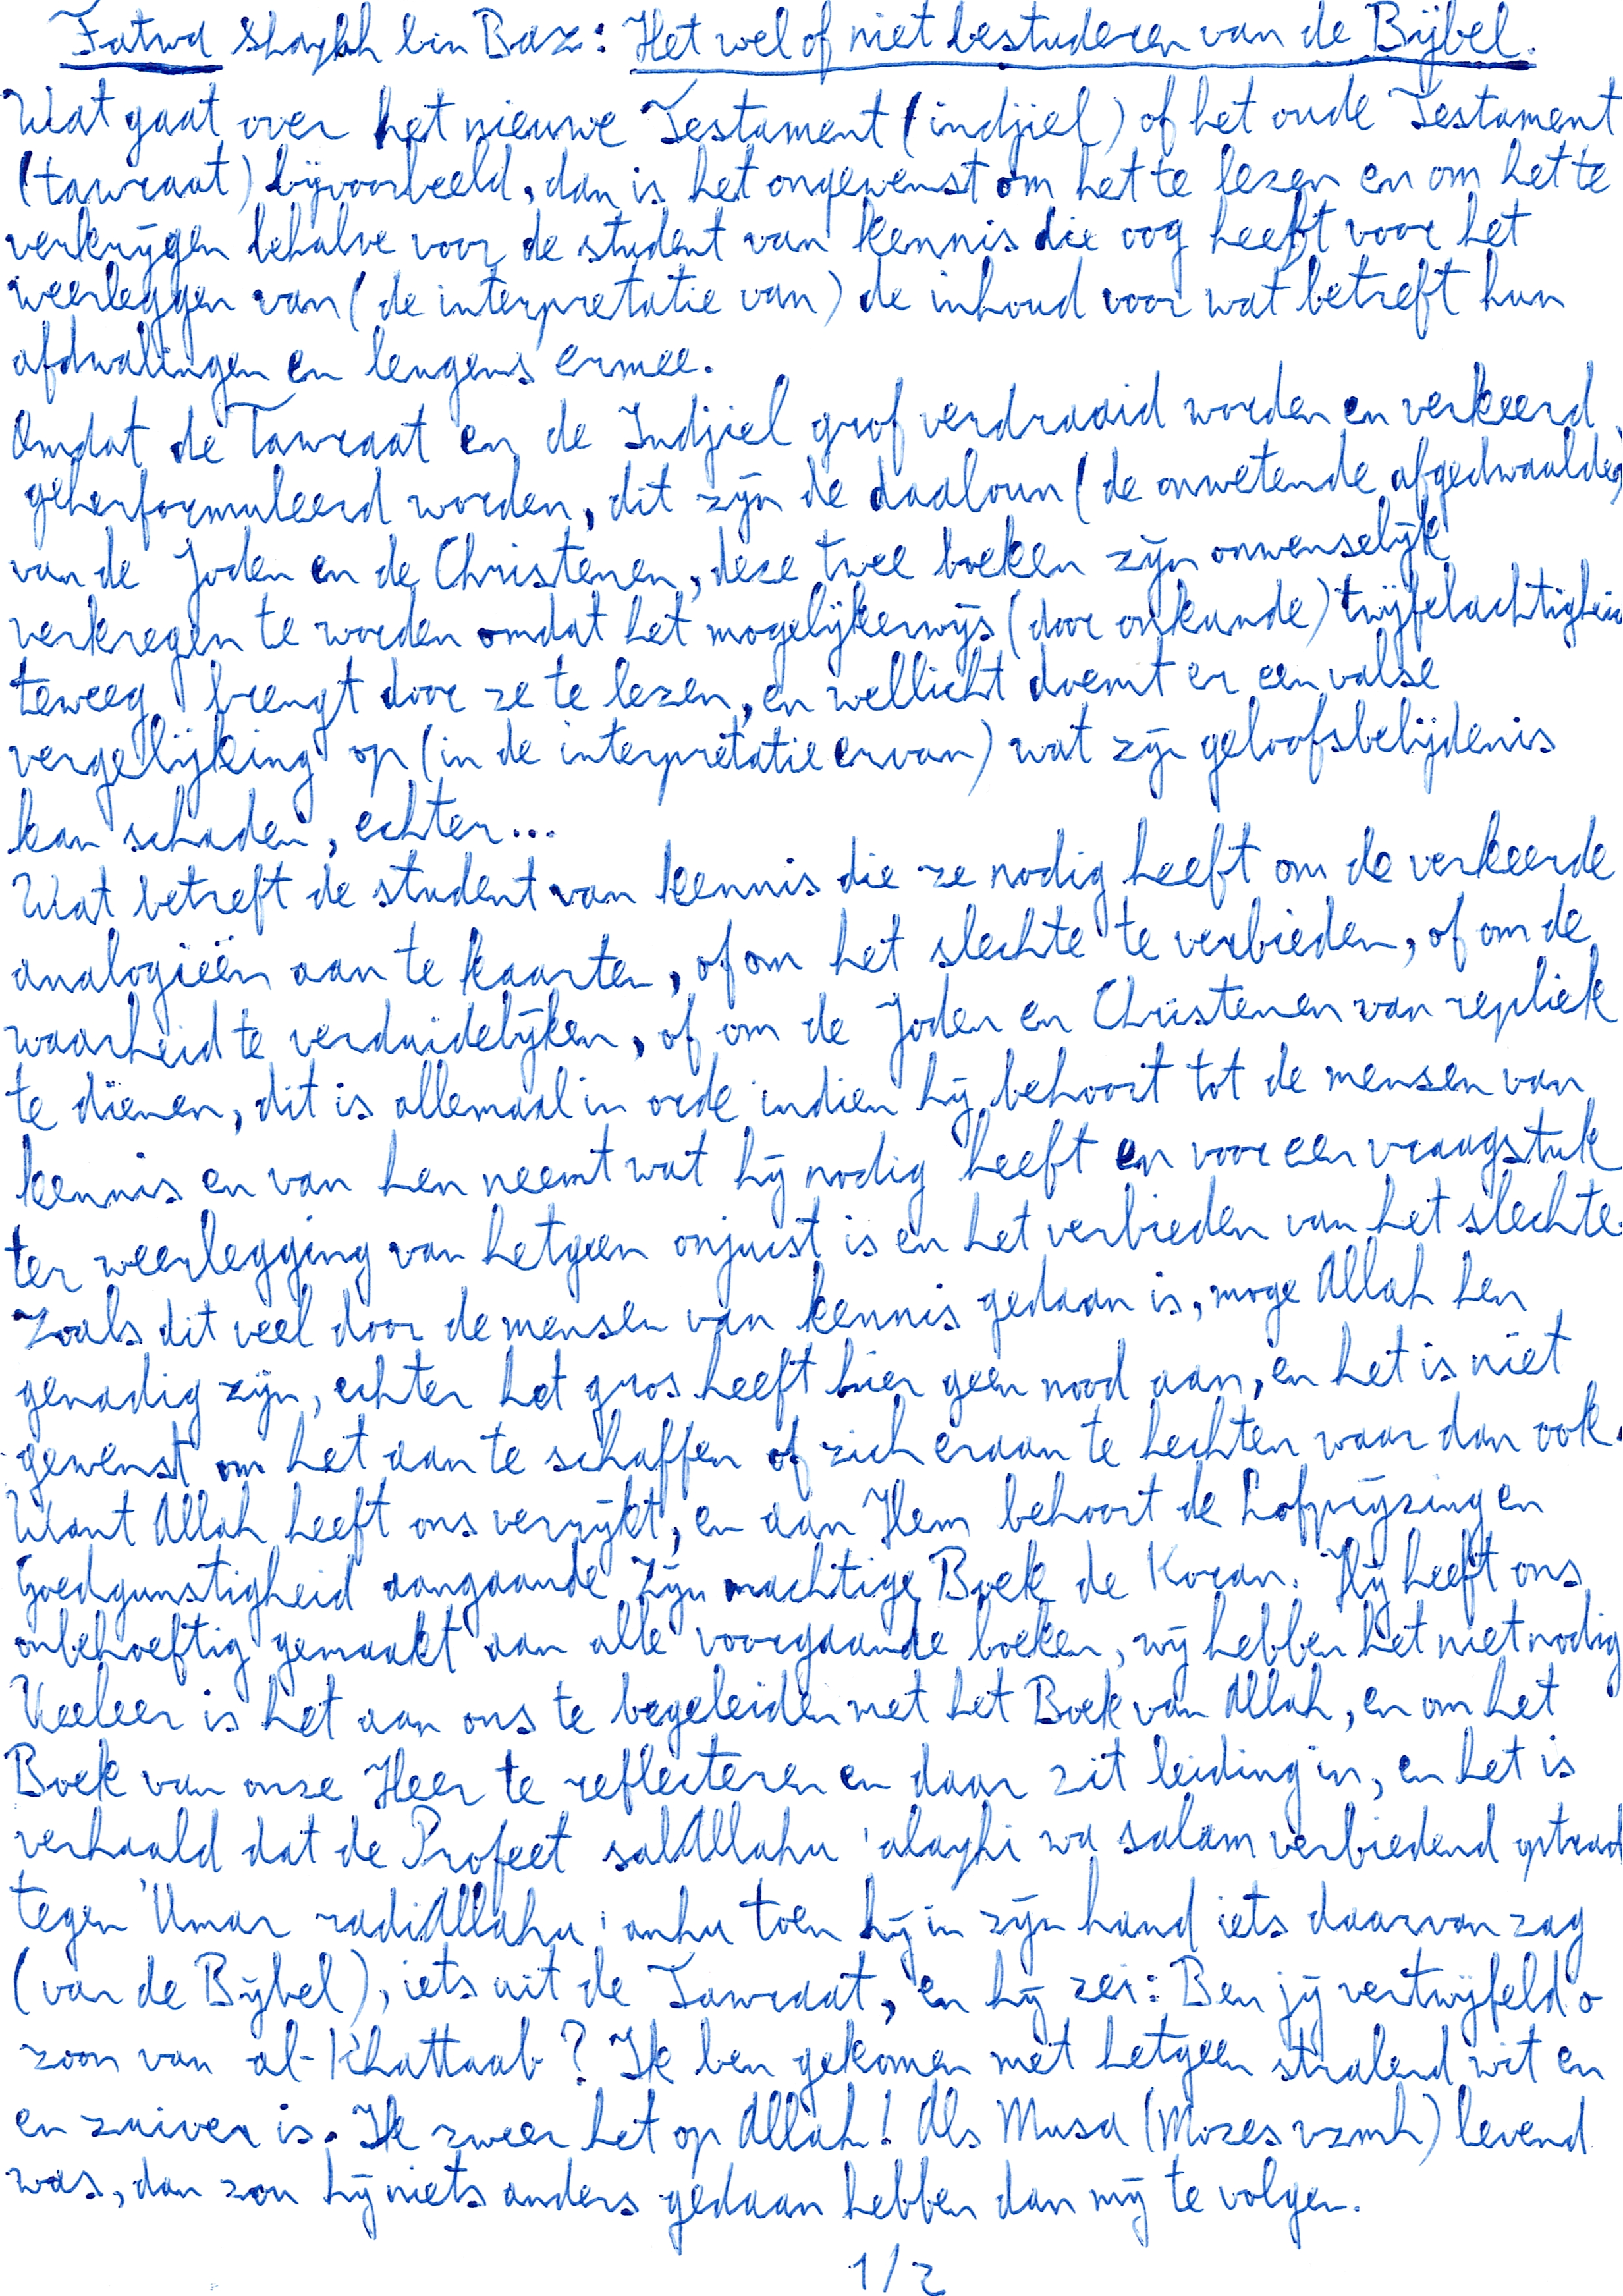 Fatwa Shaykh bin Baz: Het wel of niet bestuderen van de Bijbel.
Wat gaat over het nieuwe Testament (indjiel) of het oude Testament
(tawraat) bijvoorbeeld, dan is het ongewenst om het te lezen en om het te
verkrijgen behalve voor de student van kennis die oog heeft voor het
weerleggen van (de interpretatie van) de inhoud voor wat betreft hun
afdwalingen en leugens ermee.
Omdat de Tawraat en de Indjiel grof verdraaid worden en verkeerd
geherformuleerd worden, dit zijn de daaloun (de onwetende afgedwaalden)
van de Joden en de Christenen, deze twee boeken zijn onwenselijk
verkregen te worden omdat het mogelijkerwijs (door onkunde) twijfelachtigheid
teweeg brengt door ze te lezen, en wellicht doemt er een valse
vergelijking op (in de interpretatie ervan) wat zijn geloofsbelijdenis
kan schaden, echter...
Wat betreft de student van kennis die ze nodig heeft om de verkeerde
analogieën aan te kaarten, of om het slechte te verbieden, of om de
waarheid te verduidelijken, of om de Joden en Christenen van repliek
te dienen, dit is allemaal in orde indien hij behoort tot de mensen van
kennis en van hen neemt wat hij nodig heeft en voor een vraagstuk
ter weerlegging van hetgeen onjuist is en het verbieden van het slechte
zoals dit veel door de mensen van kennis gedaan is, moge Allah hen
genadig zijn, echter het gros heeft hier geen nood aan, en het is niet
gewenst om het aan te schaffen of zich eraan te hechten waar dan ook.
Want Allah heeft ons verrijkt, en aan Hem behoort de Lofprijzing en
Goedgunstigheid aangaande Zijn machtige Boek de Koran. Hij heeft ons
onbehoeftig gemaakt aan alle voorgaande boeken, wij hebben het niet nodig
Veeleer is het aan ons te begeleiden met het Boek van Allah, en om het
Boek van onze Heer te reflecteren en daar zit leiding in, en het is
verhaald dat de Profeet salAllahu 'alayhi wa salam verbiedend optrad
tegen 'Umar radiAllahu 'anhu toen hij in zijn hand iets daarvan zag
(van de Bijbel), iets uit de Tawraat, en hij zei: Ben jij vertwijfeld o
zoon van al-Khattaab? Ik ben gekomen met hetgeen stralend wit en
en zuiver is. Ik zweer het op Allah! Als Musa (Mozes vzmh) levend
was, dan zou hij niets anders gedaan hebben dan mij te volgen.
1/2